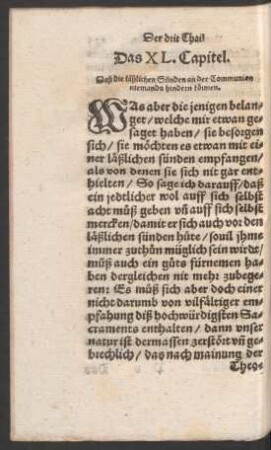 Der drit Thail
Das XL. Capitel.
Daß die läßlichen Sünden an der Communion
niemands hindern können.
WAs aber die jenigen belan-
get / welche mir etwan ge-
saget haben / sie besorgen
sich / sie möchten es etwan mit ei-
ner läßlichen sünden empfangen /
als von denen sie sich nit gar ent-
hielten / So sage ich darauff / daß
ein jedtlicher wol auff sich selbst
acht müß geben vñ auff sich selbst
mercken / damit er sich auch vor den
läßlichen sünden hüte / souil jhme
immer zuthůn müglich sein würdt /
müß auch ein gůts fürnemen ha-
ben dergleichen nit mehr zubege-
ren: Es müß sich aber doch einer
nicht darumb von vilfältiger em-
pfahung diß hochwürdigsten Sa-
craments enthalten / dann vnser
natur ist dermassen zerstört vñ ge-
brechlich / das nach mainung der
Theo-